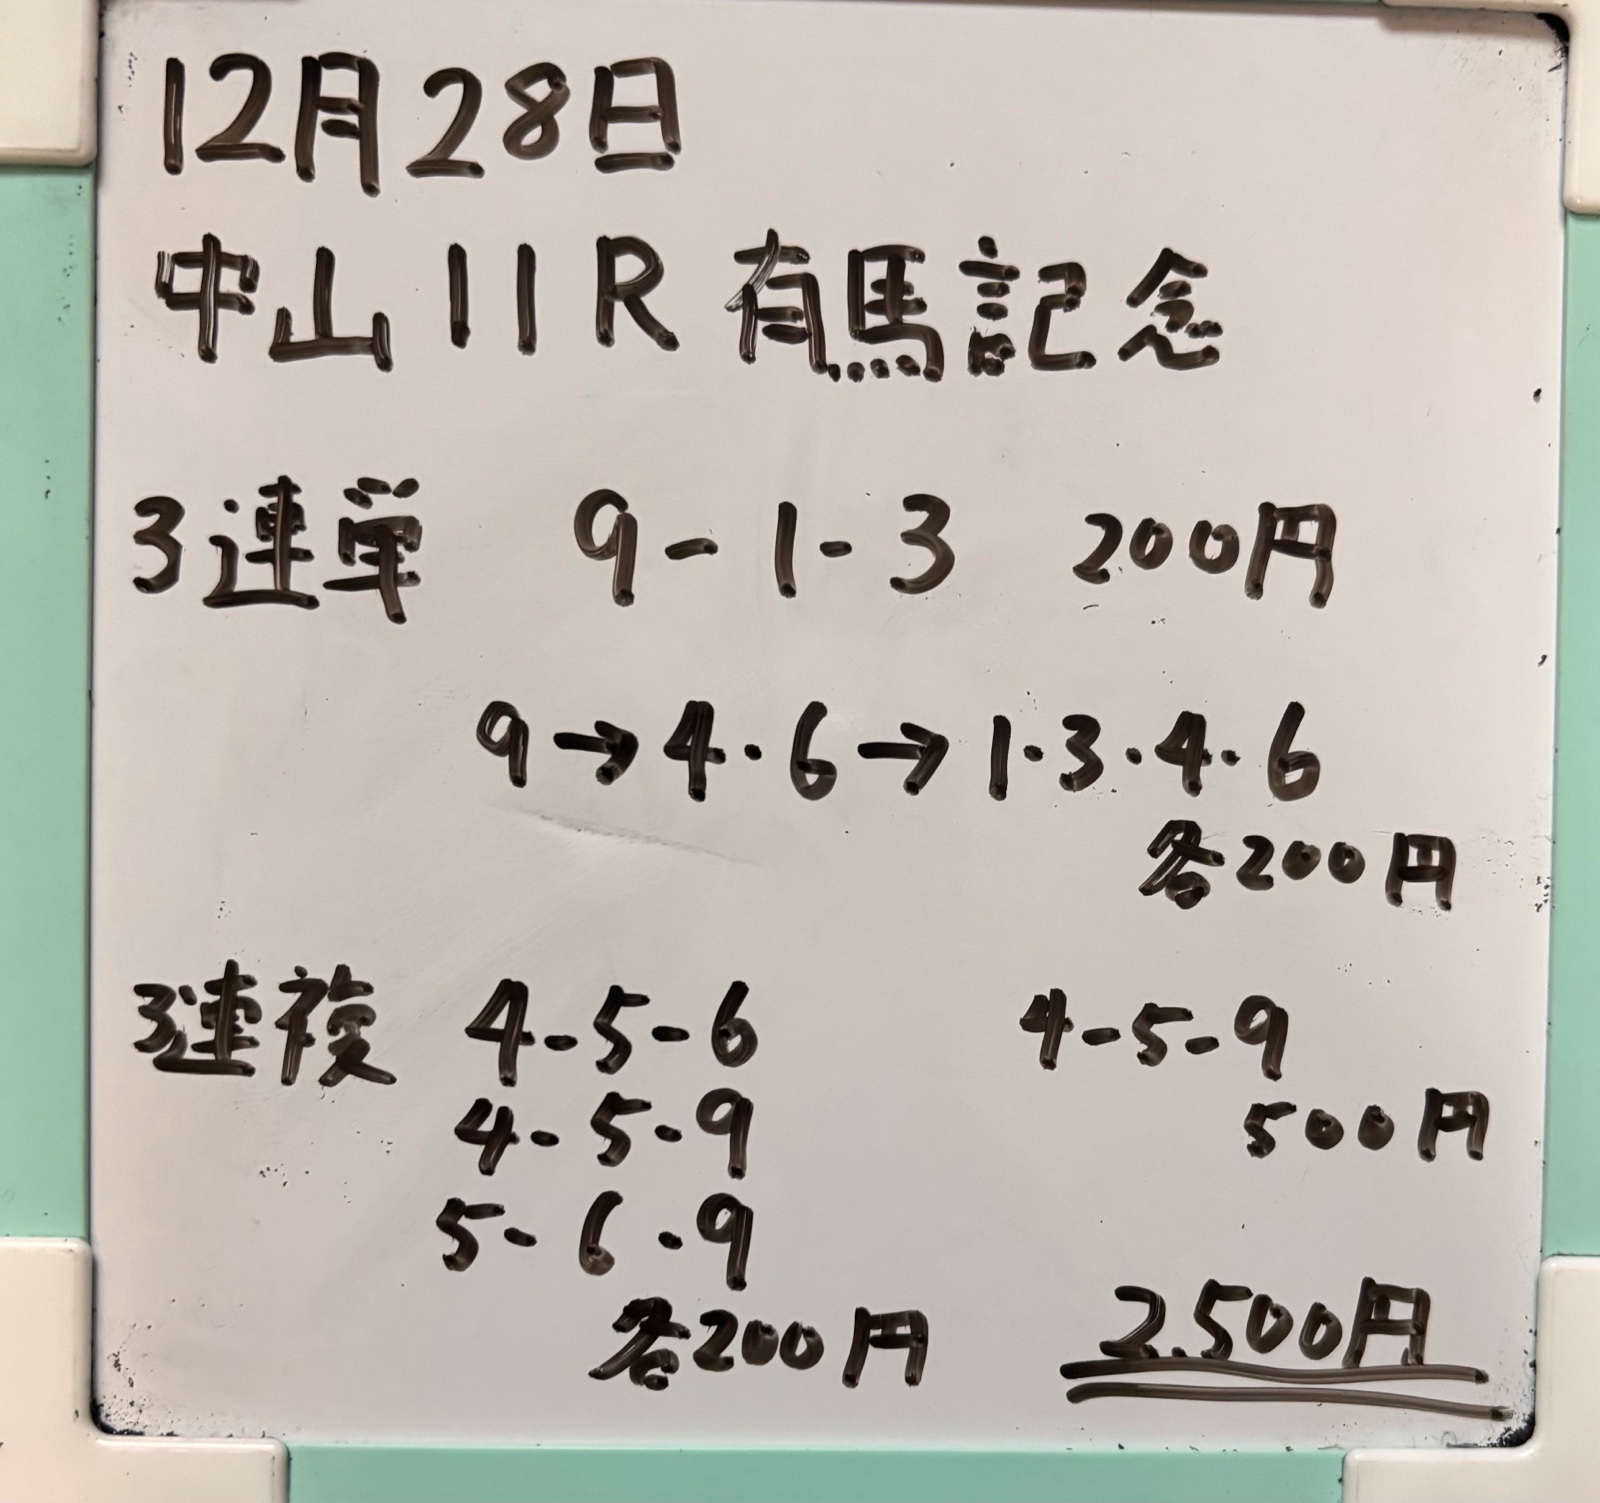 12月28日
中山11R 有馬記念
3連単 9-1-3 200円
9→4・6→1・3・4・6
各200円
3連複 4-5-6
4-5-9
5-6-9
各200円
4-5-9
500円
2.500円